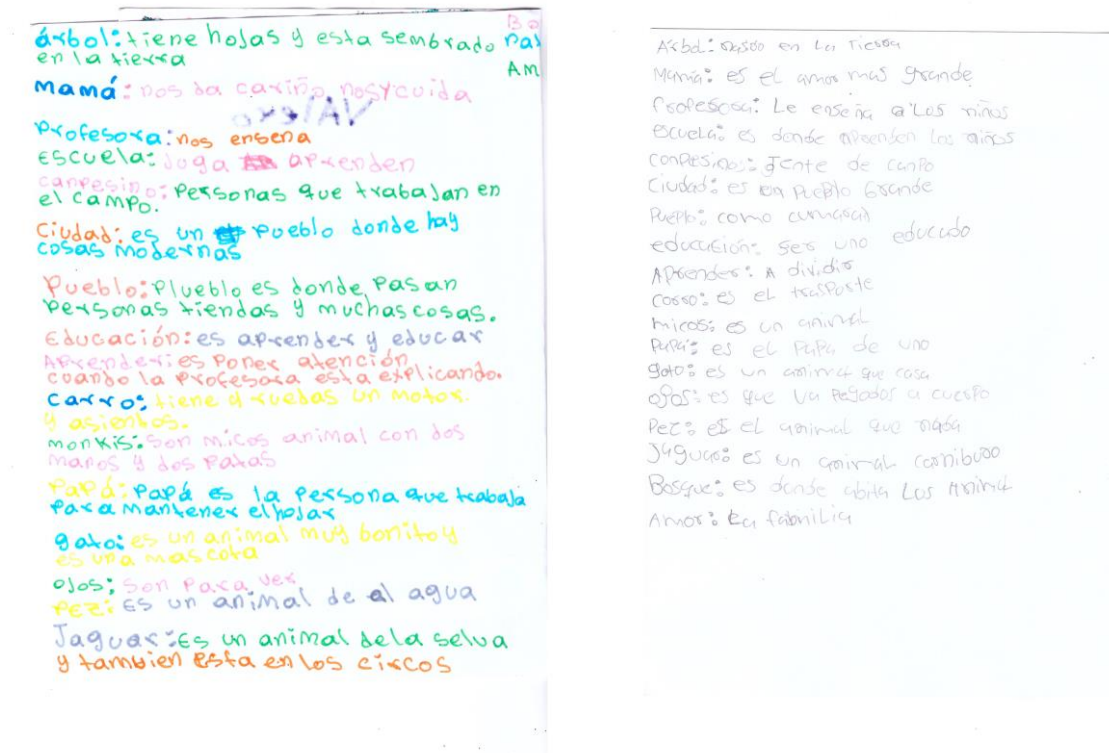 árbol: tiene hojas y esta sembrado
en la tierra
mamá: nos da cariño nos y cuida
Profesora: nos ensena
Escuela: Juga aprenden
canpesino: Personas que trabajan en
el campo.
Ciudad: es un pueblo donde hay
cosas modernas
Pueblo: Plueblo es donde pasan
Personas tiendas y muchas cosas.
Educación: es aprender y educar
Aprender: es Poner atención
cuando la Profesora esta explicando.
carro: tiene 4 ruedas un motor
y asientos.
monkis: Son micos animal con dos
manos y dos Patas
Papá: Papá es la Persona que trabaja
Para mantener el hojar
gato: es un animal muy bonito y
es una mascota
ojos: Son Para ver
Pez: Es un animal de el agua
Jaguar: Es un animal dela selva
y tambien esta en los circos
Bo
Pa
AM
Arbol: en La Tierra
Mamá: es el amor mas grande
Profesora: Le enseña a Los niños
escuela: es donde aprenden Los niños
conpesinos: Jente de canpo
Ciudad: es un Pueblo Grande
Pueblo: como
educasión: ser uno educado
Aprender: A dividir
corro: es el trasporte
micos: es un animal
Papá: es el Papa de uno
gato: es un animal que casa
ojos: es que va Pegados a cuerpo
Pez: es el animal que naba
Jaguar: es un animal corniboro
Bosque: es donde abita Los Animal
Amor: La